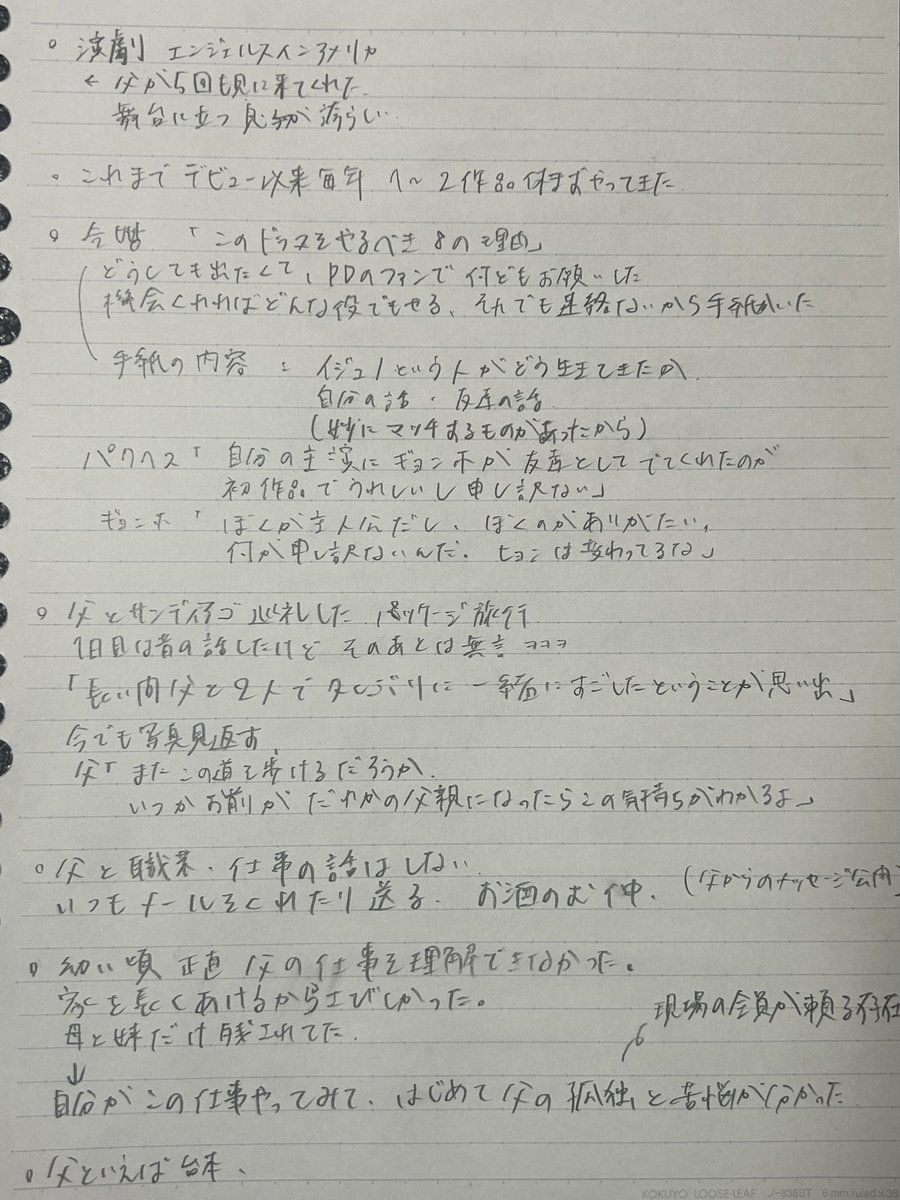 ○ 演劇 エンジェルスインアメリカ
← 父が5回も見に来てくれた
舞台に立つ息子が誇らしい
○ これまで デビュー以来毎年 1〜2作品休まずやってきた
○ 今際「このドラマをやるべき8の理由」
どうしても出たくて、PDのファンで何どもお願いした
機会くれればどんな役でもやる、それでも連絡ないから手紙かいた
手紙の内容 : イジュノという人がどう生きてきたか
自分の話・友達の話
(妙にマッチするものがあったから)
パクヘス「自分の主演にギョンホが友達としてでてくれたのが
初作品でうれしいし申し訳ない」
ギョンホ「ぼくが主人公だし、ぼくのがありがたい、
何が申し訳ないんだ。ヒョンは変わってるな」
○ 父とサンティアゴ巡礼した パッケージ旅行
1日目は昔の話したけど そのあとは無言 ㅋㅋㅋ
「長い間父と2人でたっぷりに一緒にすごしたということが思い出」
今でも写真見返す
父「またこの道を歩けるだろうか、
いつかお前がだれかの父親になったらこの気持ちがわかるよ」
○ 父と職業・仕事の話はしない
いつもメールをくれたり送る、お酒のむ仲、(父からのメッセージ公開)
○ 幼い頃 正直 父の仕事を理解できなかった。
家を長くあけるからさびしかった。
母と妹だけ残されてた
現場の全員が頼る存在
↓
自分がこの仕事やってみて、はじめて父の孤独と苦悩が分かった
○ 父といえば台本、
KOKUYO LOOSE-LEAF ノ-836BT 6 mm ruled×36